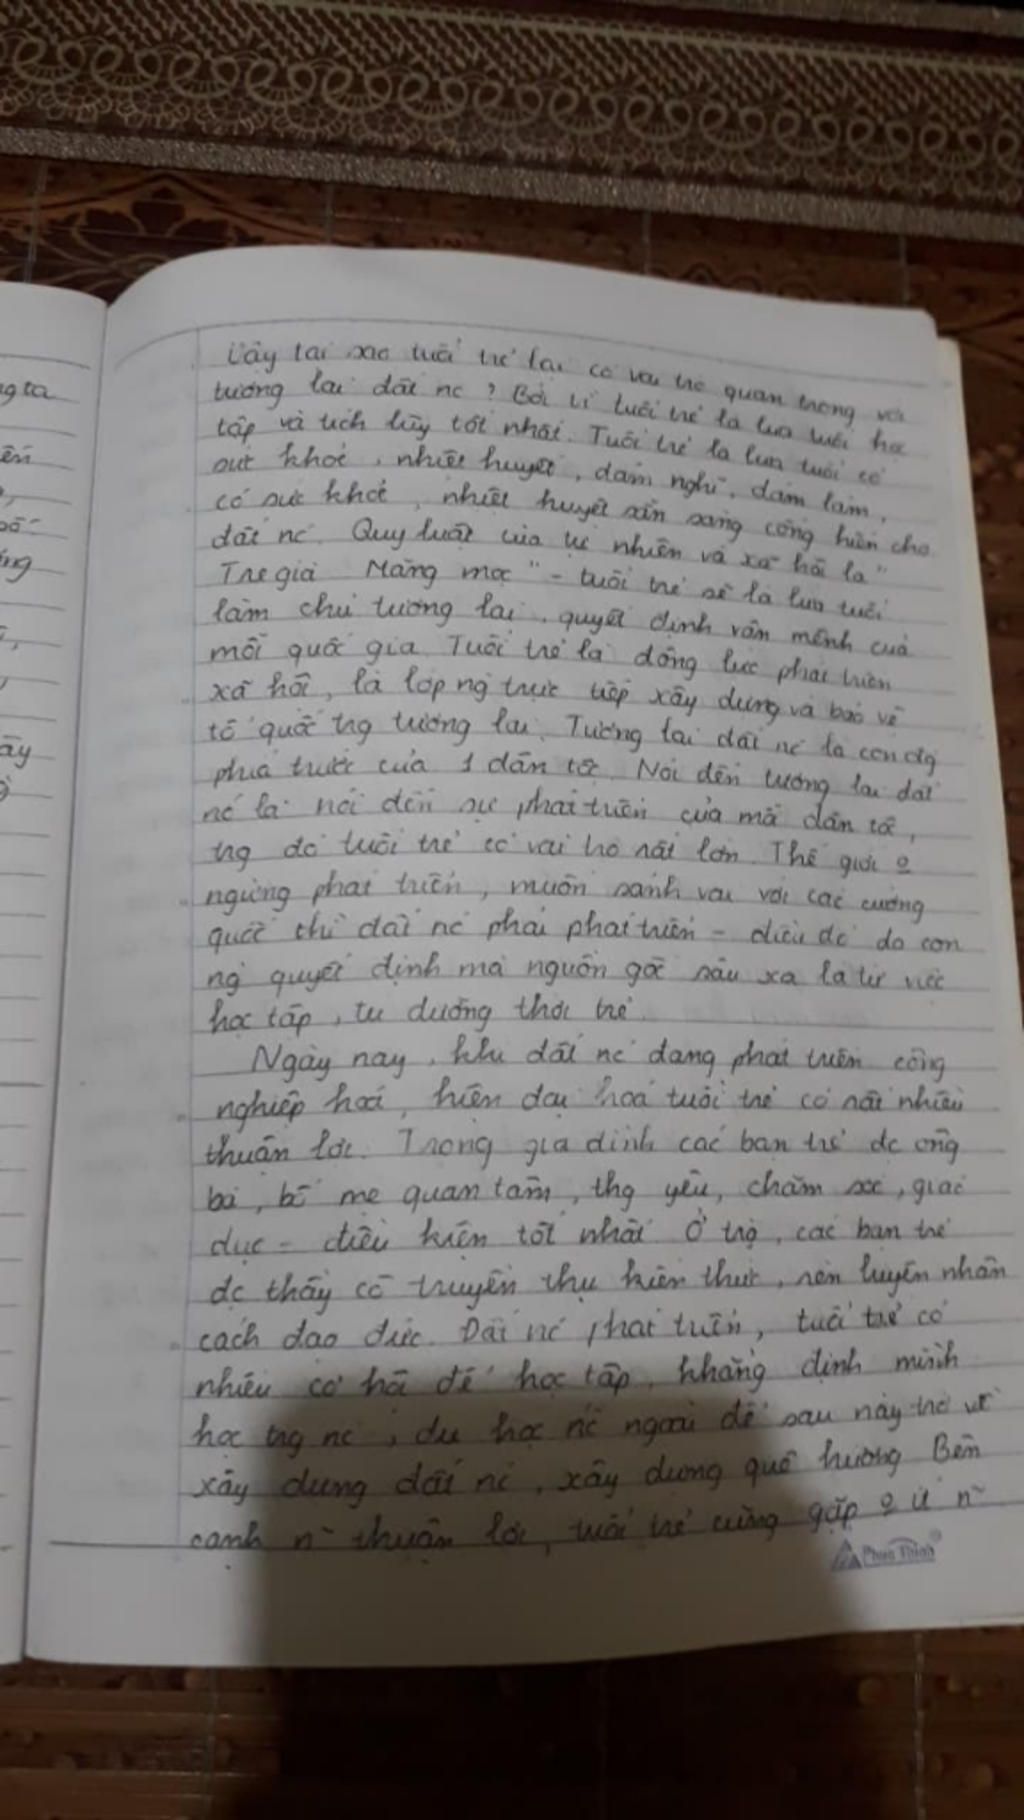 Vậy tại sao tuổi trẻ lại có vai trò quan trọng với
tương lai đất nc ? Bởi vì tuổi trẻ là lứa tuổi học
tập và tích lũy tốt nhất. Tuổi trẻ là lứa tuổi có
sức khoẻ, nhiệt huyết, dám nghĩ, dám làm,
có sức khoẻ, nhiệt huyết sẵn sàng cống hiến cho
đất nc. Quy luật của tự nhiên và xã hội là "
Tre già Măng mọc" - tuổi trẻ sẽ là lứa tuổi
làm chủ tương lai, quyết định vận mệnh của
mỗi quốc gia. Tuổi trẻ là động lực phát triển
xã hội, là lớp ng trực tiếp xây dựng và bảo vệ
tổ quốc trg tương lai. Tương lai đất nc là con đg
phía trước của 1 dân tộc. Nói đến tương lai đất
nc là nói đến sự phát triển của mỗ dân tộ,
trg đó tuổi trẻ có vai trò rất lớn. Thế giới o
ngừng phát triển, muốn sánh vai với các cường
quốc thì đất nc phải phát triển - điều đó do con
ng quyết định mà nguồn gốc sâu xa là từ việc
học tập, tu dưỡng thời trẻ.
Ngày nay, khi đất nc đang phát triển công
nghiệp hoá, hiện đại hoá tuổi trẻ có rất nhiều
thuận lợi. Trong gia đình các bạn trẻ đc ông
bà, bố mẹ quan tâm, thg yêu, chăm sóc, giáo
dục - điều kiện tốt nhất. Ở trg, các bạn trẻ
đc thầy cô truyền thụ kiến thức, rèn luyện nhân
cách đạo đức. Đất nc phát triển, tuổi trẻ có
nhiều cơ hội để học tập, khẳng định mình
học trg nc, du học nc ngoài để sau này trở về
xây dựng đất nc, xây dựng quê hương. Bên
cạnh n~ thuận lợi, tuổi trẻ cũng gặp o ít n~
Phúc Thịnh
gta
ên
bố
ng
ây